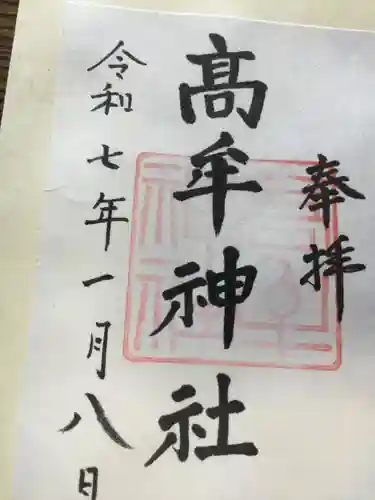 奉拝
髙牟神社
令和七年一月八日